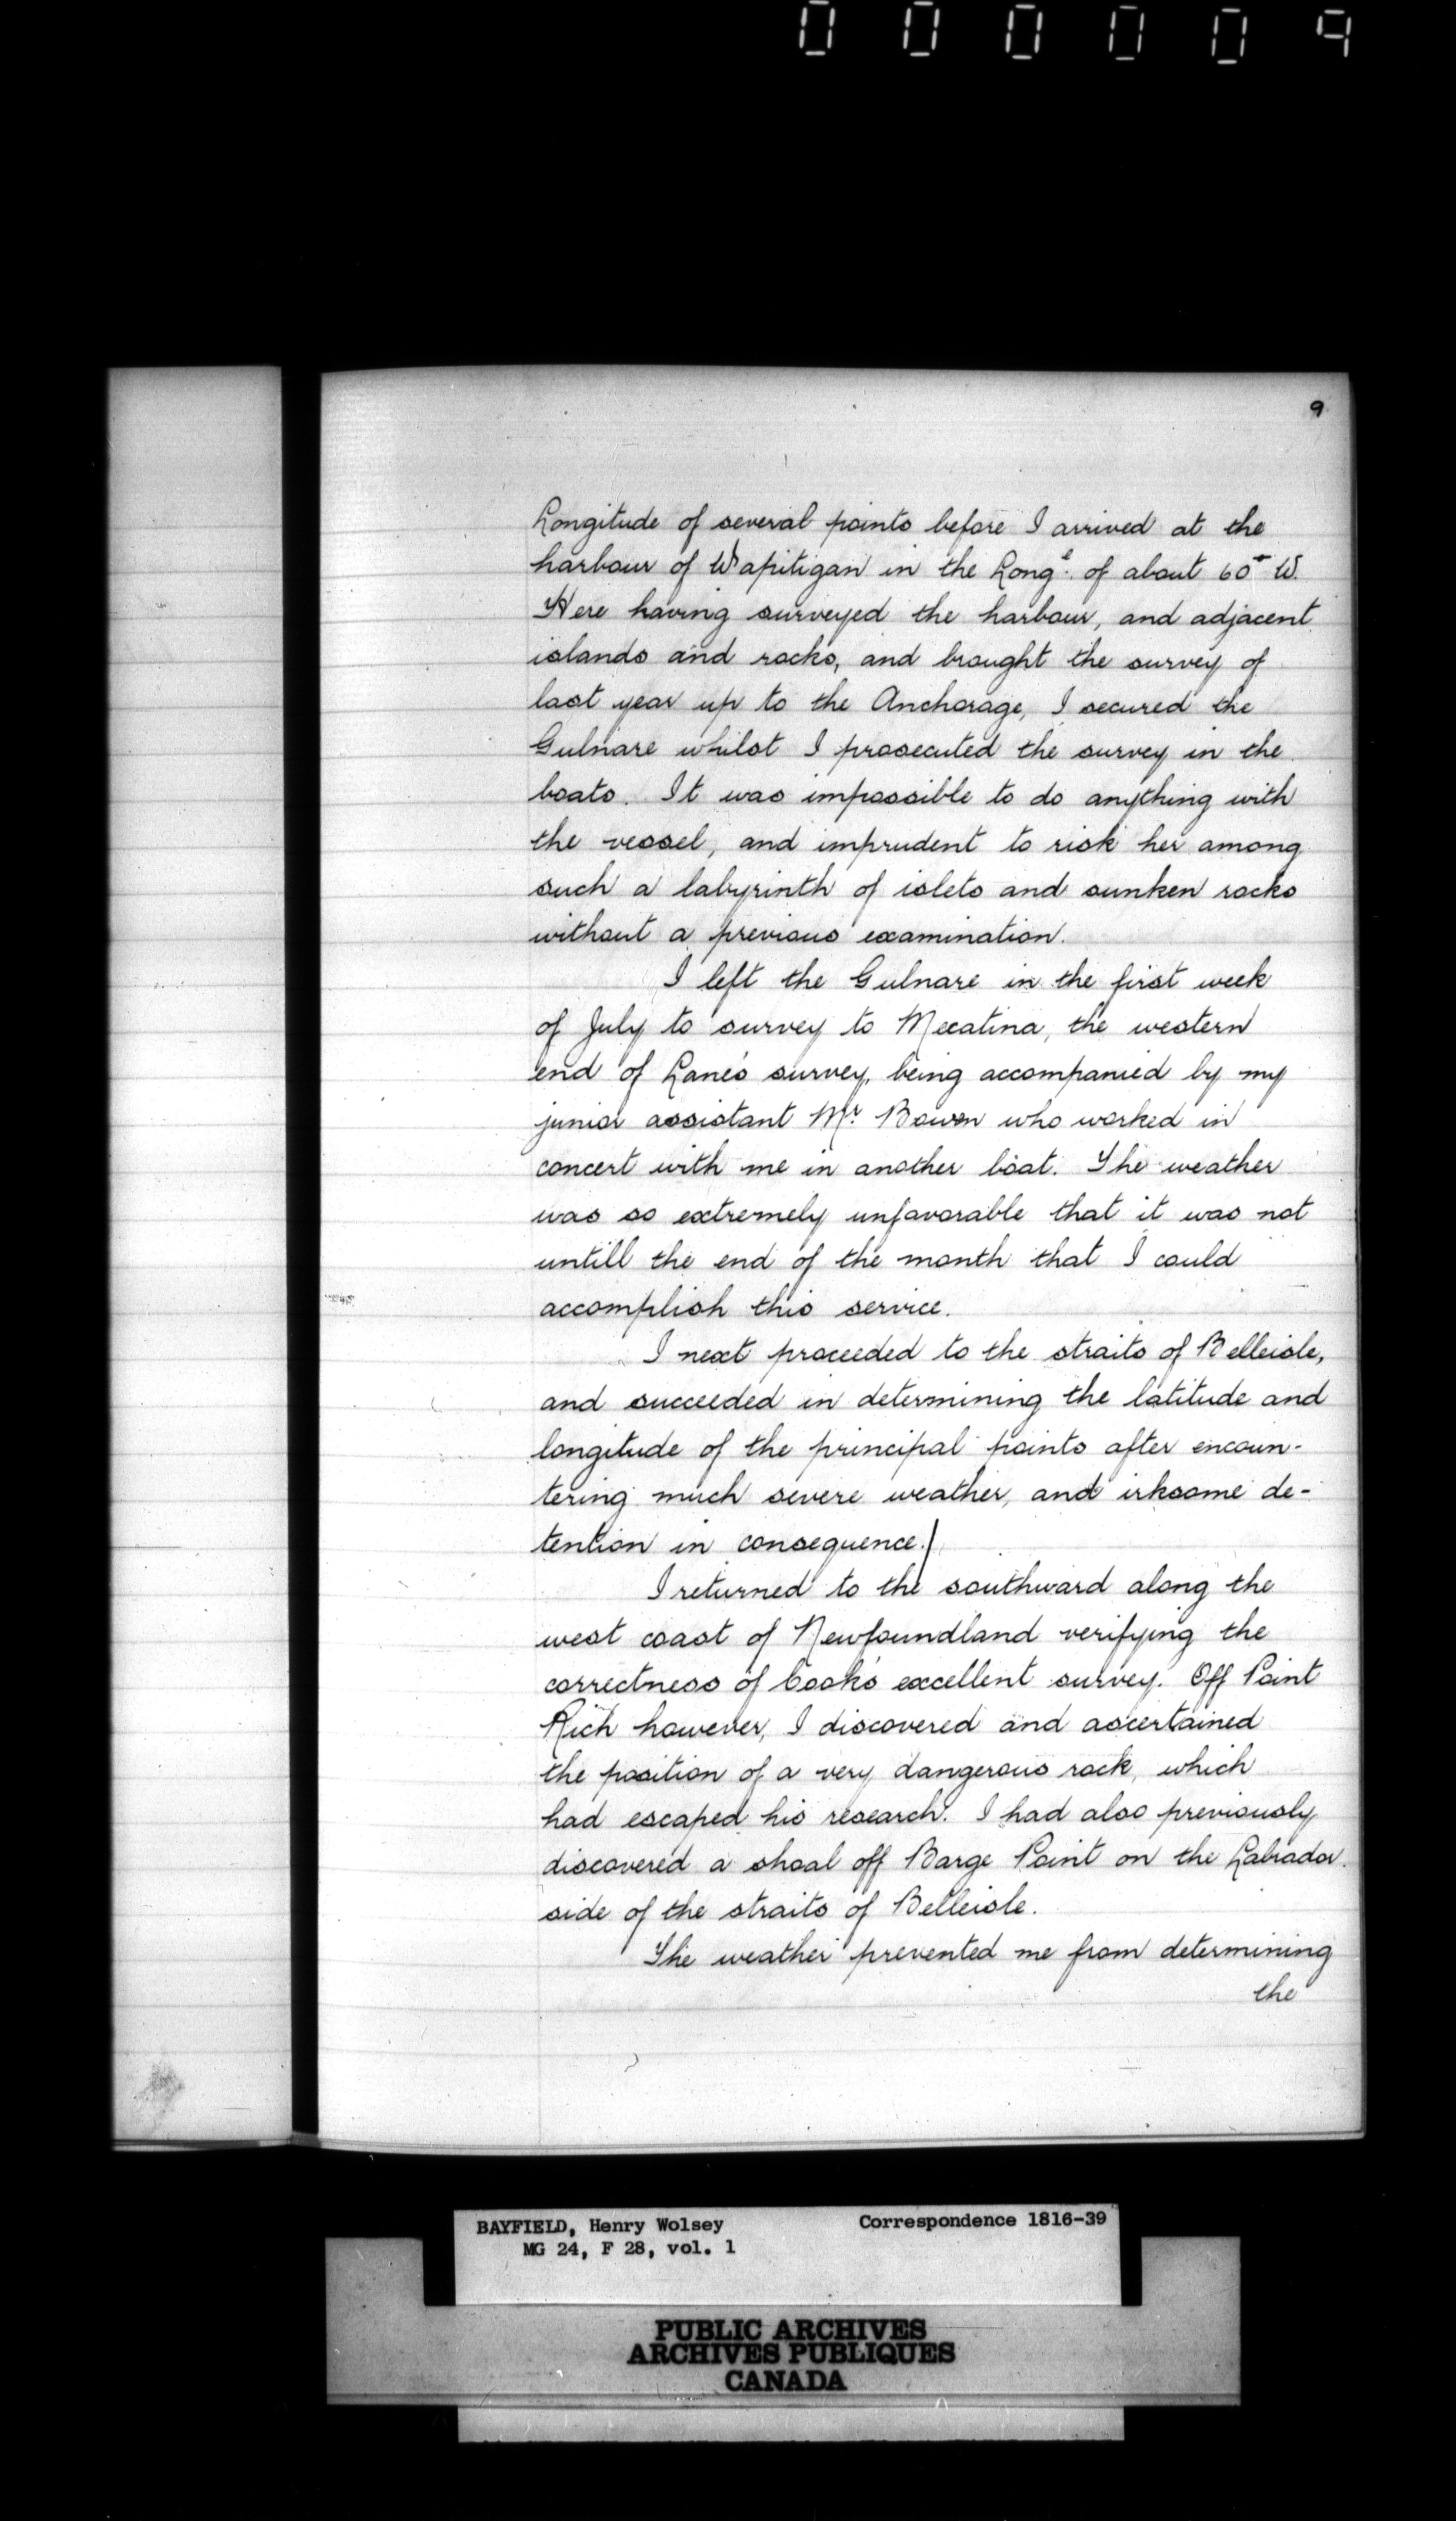 000009
9
Longitude of several points before I arrived at the
harbour of Wapitigan in the Long.e of about 60° W.
Here having surveyed the harbour, and adjacent
islands and rocks, and brought the survey of
last year up to the Anchorage, I secured the
Gulnare whilst I prosecuted the survey in the
boats. It was impossible to do anything with
the vessel, and imprudent to risk her among
such a labyrinth of islets and sunken rocks
without a previous examination.
I left the Gulnare in the first week
of July to survey to Mecatina, the western
end of Lane's survey, being accompanied by my
junior assistant Mr. Bowen who worked in
concert with me in another boat. The weather
was so extremely unfavorable that it was not
untill the end of the month that I could
accomplish this service.
I next proceeded to the straits of Belleisle,
and succeeded in determining the latitude and
longitude of the principal points after encoun-
tering much severe weather, and irksome de-
tention in consequence./
I returned to the southward along the
west coast of Newfoundland verifying the
correctness of Cook's excellent survey. Off Point
Rich however, I discovered and ascertained
the position of a very dangerous rock, which
had escaped his research. I had also previously
discovered a shoal off Barge Point on the Labrador
side of the straits of Belleisle.
The weather prevented me from determining
the
BAYFIELD, Henry Wolsey Correspondence 1816-39
MG 24, F 28, vol. 1
PUBLIC ARCHIVES
ARCHIVES PUBLIQUES
CANADA